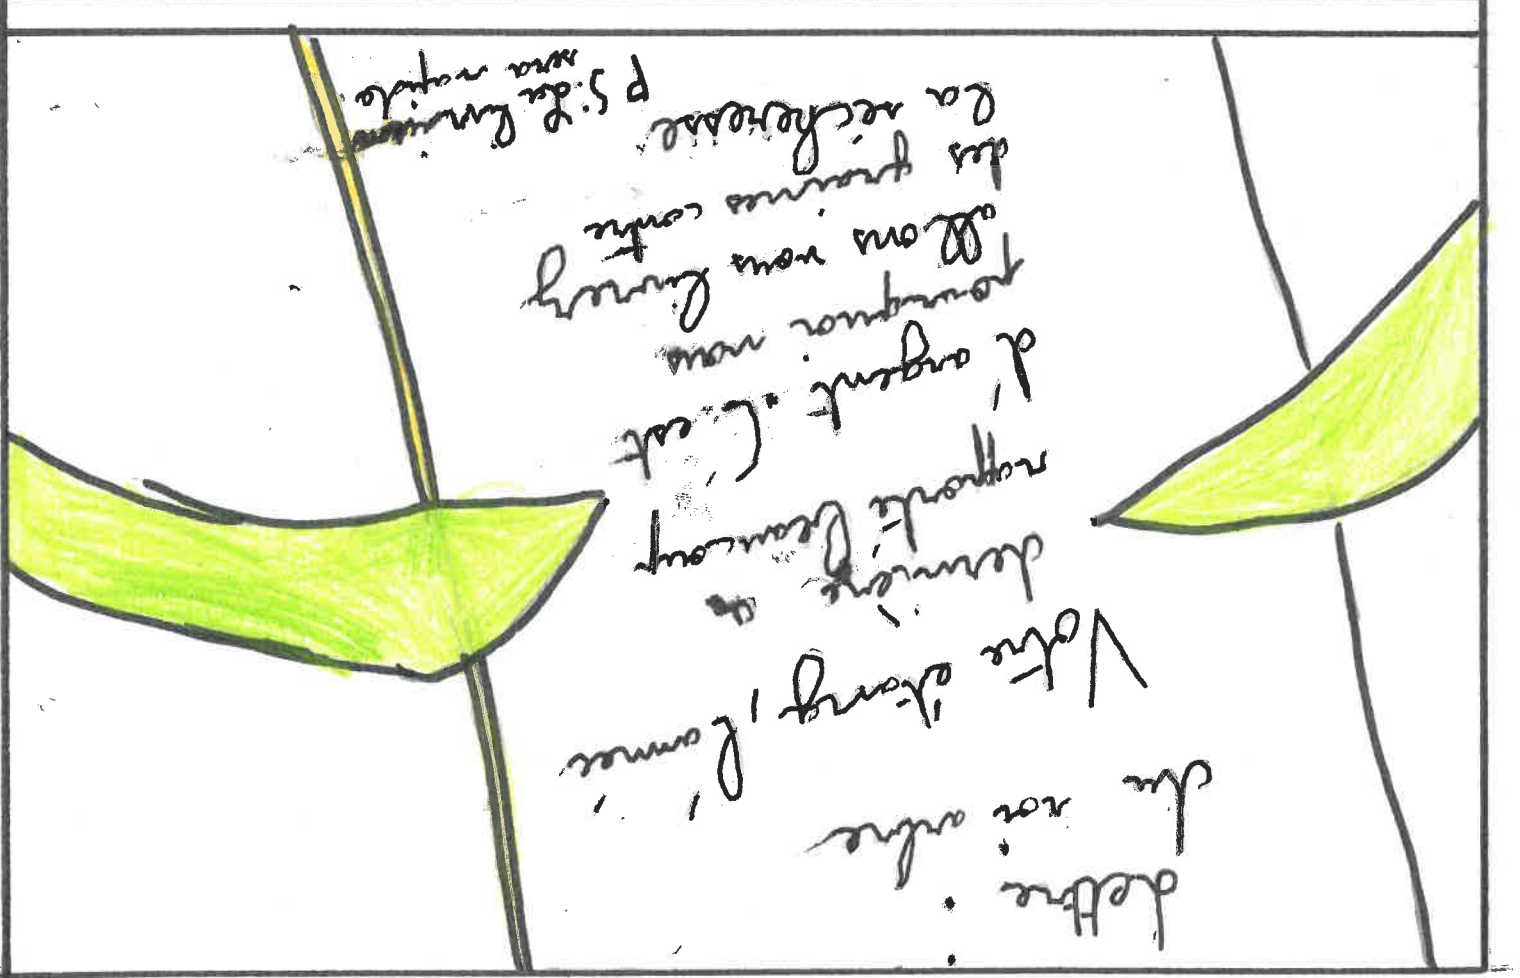 Lettre :
du roi arbre
Votre étang, l'année
dernière a
rapporté beaucoup
d'argent. C'est
pourquoi nous
allons vous livrez
des graines contre
la sécheresse
P S: La livraison
sera rapide.